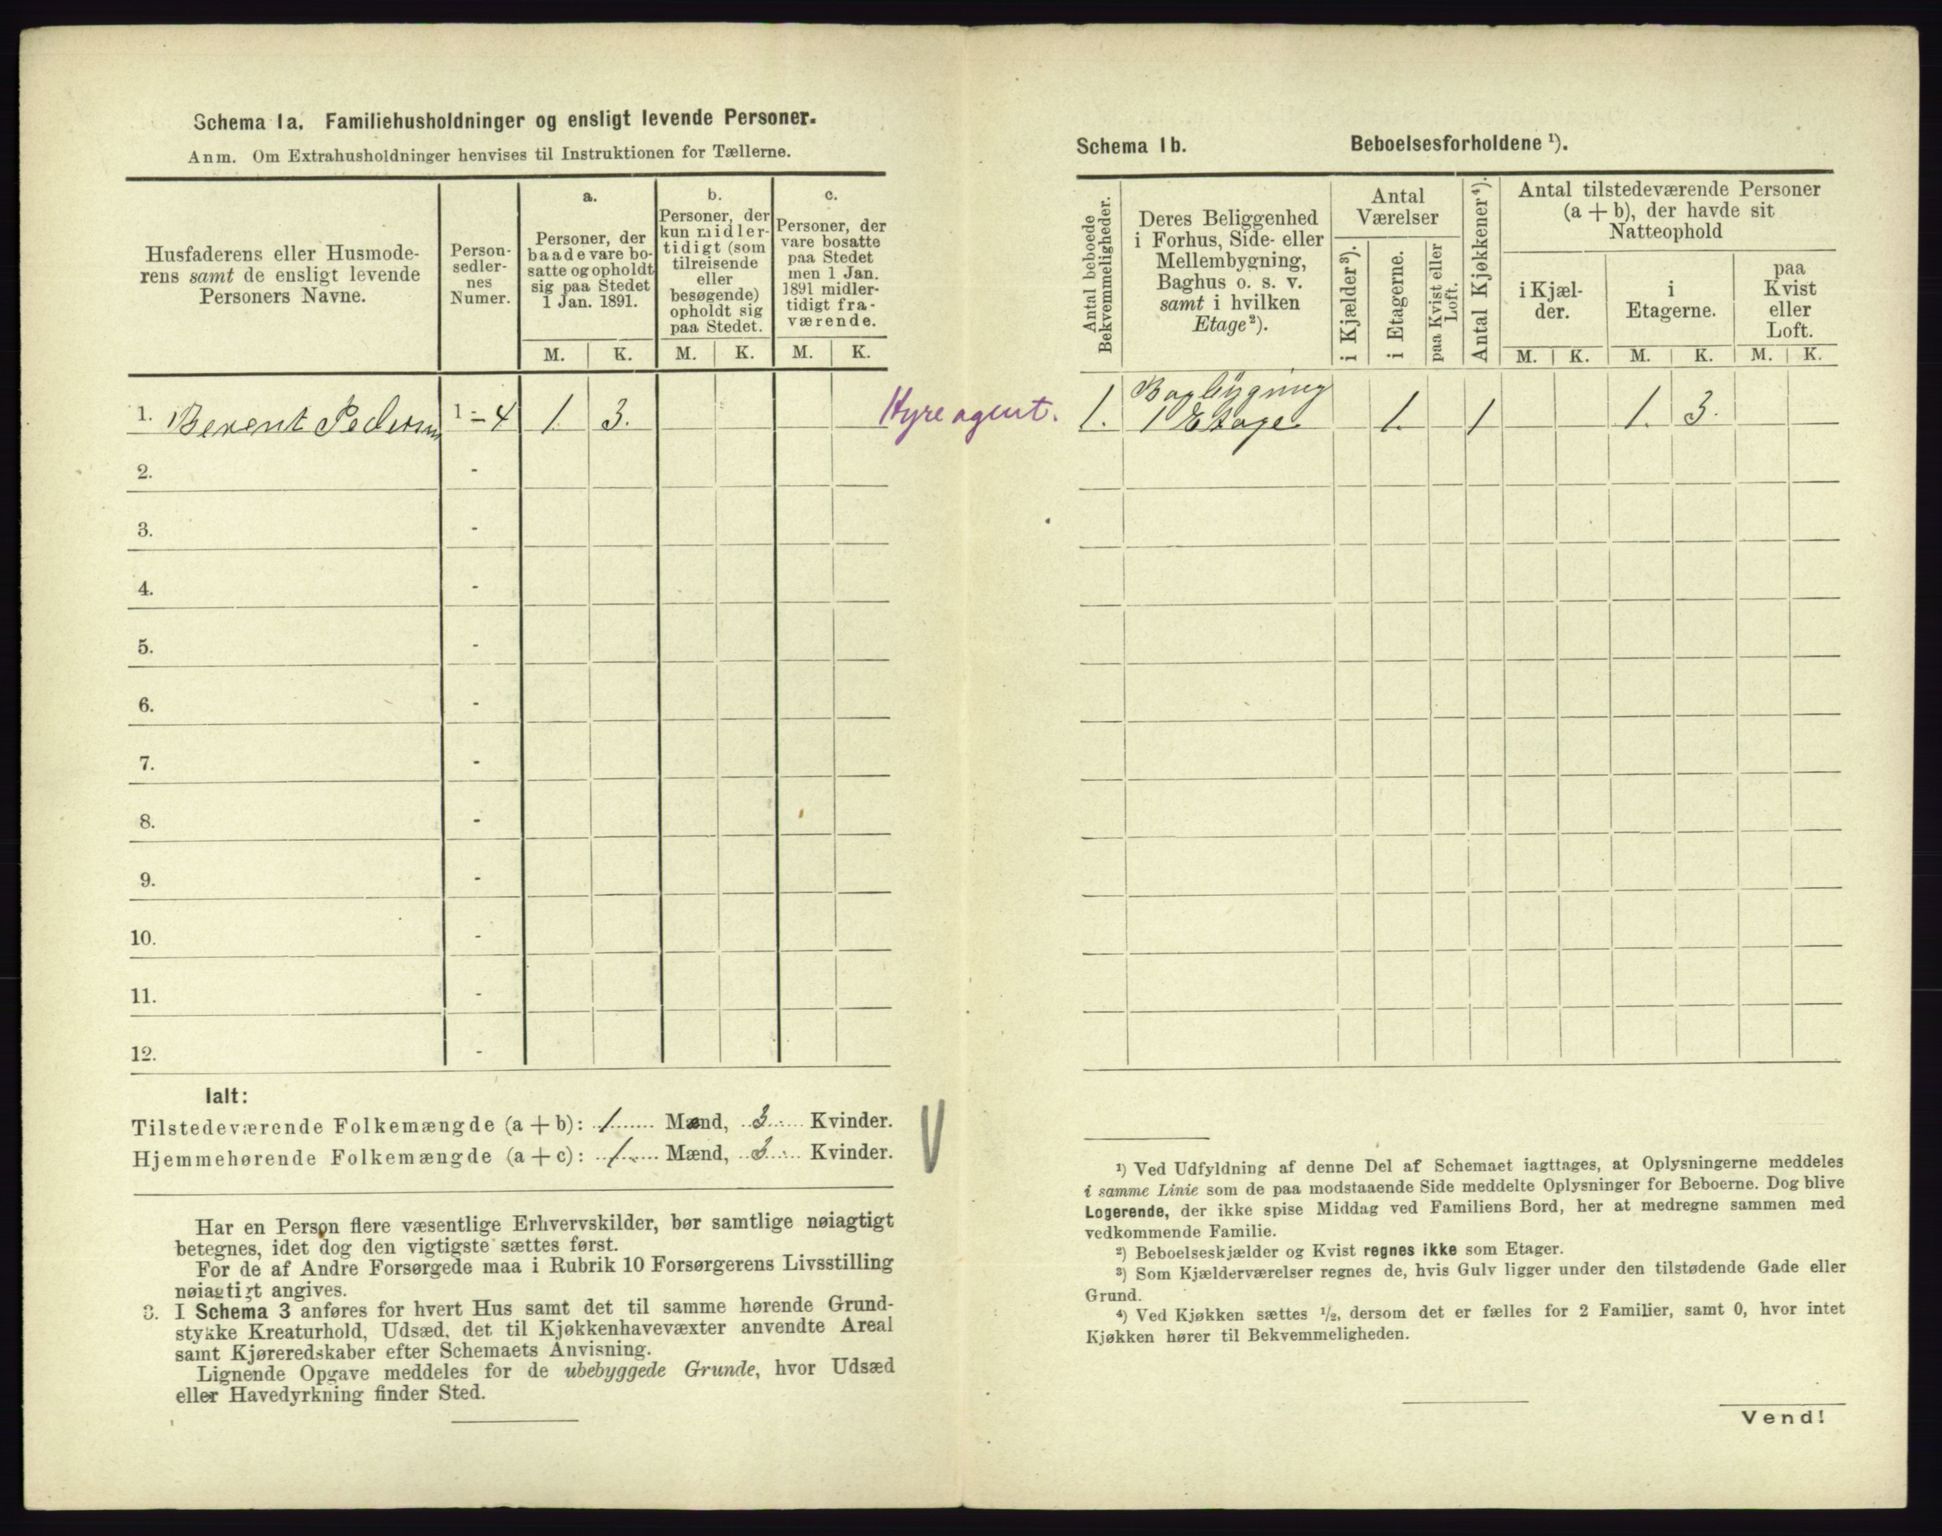 Schema 1a. Familiehusholdninger og ensligt levende Personer.
Anm. Om Extrahusholdninger henvises til Instruktionen for Tællerne.
Husfaderens eller Husmode-
rens samt de ensligt levende
Personers Navne.
Person-
sedler-
nes
Numer.
a.
Personer, der
baade vare bo-
satte og opholdt
sig paa Stedet
1 Jan. 1891.
b.
Personer, der
kun midler-
tidigt (som
tilreisende
eller
besøgende)
opholdt sig
paa Stedet.
c.
Personer, der
vare bosatte
paa Stedet
men 1 Jan.
1891 midler-
tidigt fra-
værende.
M. K. M. K. M. K.
1. Berent Pedersen 1 - 4 1. 3. Hyreagent.
2. -
3. -
4. -
5. -
6. -
7. -
8. -
9. -
10. -
11. -
12. -
Ialt:
Tilstedeværende Folkemængde (a + b): 1 Mænd, 3 Kvinder.
Hjemmehørende Folkemængde (a + c): 1 Mænd, 3 Kvinder.
Har en Person flere væsentlige Erhvervskilder, bør samtlige nøiagtigt
betegnes, idet dog den vigtigste sættes først.
For de af Andre Forsørgede maa i Rubrik 10 Forsørgerens Livsstilling
nøiagtigt angives.
3. I Schema 3 anføres for hvert Hus samt det til samme hørende Grund-
stykke Kreaturhold, Udsæd, det til Kjøkkenhavevæxter anvendte Areal
samt Kjøreredskaber efter Schemaets Anvisning.
Lignende Opgave meddeles for de ubebyggede Grunde, hvor Udsæd
eller Havedyrkning finder Sted.
Schema 1b. Beboelsesforholdene ¹).
Antal beboede
Bekvemmeligheder.
Deres Beliggenhed
i Forhus, Side- eller
Mellembygning,
Baghus o. s. v.
samt i hvilken
Etage²).
Antal
Værelser
i Kjælder³).
i Etagerne.
paa Kvist eller
Loft.
Antal Kjøkkener⁴).
Antal tilstedeværende Personer
(a + b), der havde sit
Natteophold
i Kjæl-
der.
i
Etagerne.
paa
Kvist
eller
Loft.
M. K. M. K. M. K.
Bagbygning
1. 1 Etage 1. 1 1. 3.
¹) Ved Udfyldning af denne Del af Schemaet iagttages, at Oplysningerne meddeles
i samme Linie som de paa modstaaende Side meddelte Oplysninger for Beboerne. Dog blive
Logerende, der ikke spise Middag ved Familiens Bord, her at medregne sammen med
vedkommende Familie.
²) Beboelseskjælder og Kvist regnes ikke som Etager.
³) Som Kjælderværelser regnes de, hvis Gulv ligger under den tilstødende Gade eller
Grund.
⁴) Ved Kjøkken sættes ¹/₂, dersom det er fælles for 2 Familier, samt 0, hvor intet
Kjøkken hører til Bekvemmeligheden.
Vend!